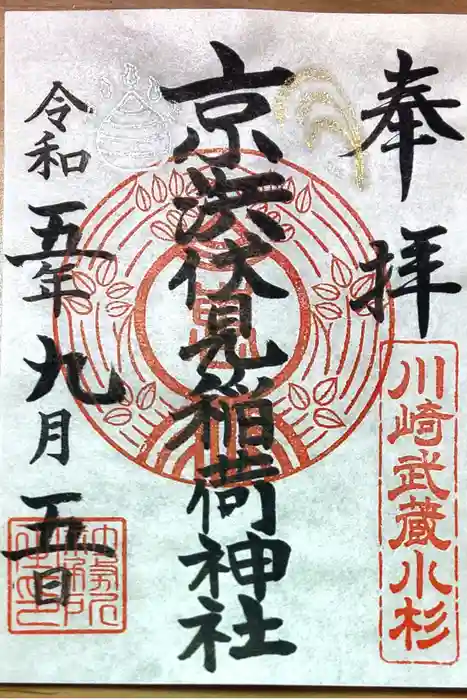 奉拝
川崎武蔵小杉
京浜伏見稲荷神社
令和五年九月五日